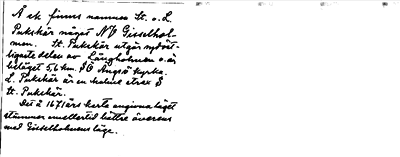 Å ek finns namnen St. o. L.
Pukskär något NV Gisselhol-
men. St. Pukskär utgör sydöst-
ligaste delen av Långholmen o. är
beläget 5,6 km. SO Angsö kyrka.
L. Pukskär är en holme strax S
St. Pukskär.
Det å 1671 års karta angivna läget
stämmer emellertid bättre överens
med Gisselholmens läge.